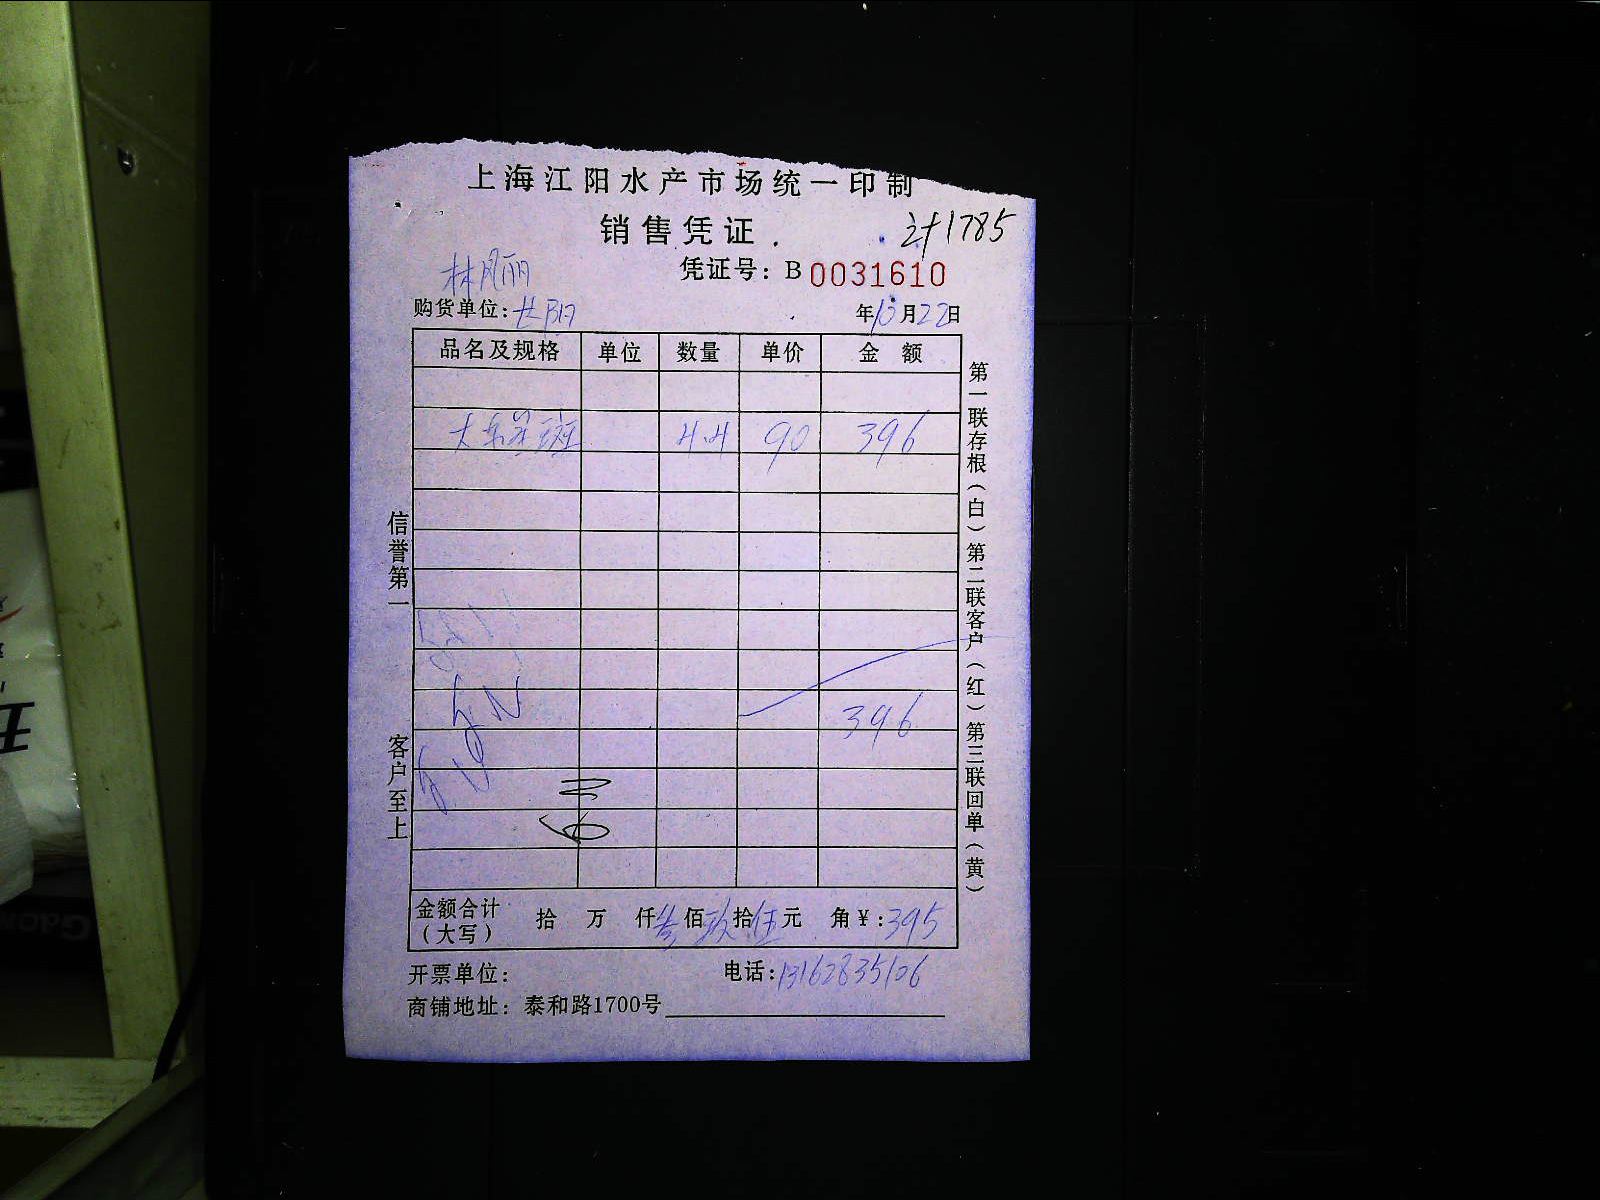 上海江阳水产市场统一印制
销售凭证
计1785
林凤丽
凭证号：B 0031610
购货单位：
年10月22日
品名及规格 单位 数量 单价 金额
大东星斑 4.4 90 396
396
金额合计（大写） 拾 万 仟叁佰玖拾伍元 角￥：395
开票单位： 电话：13162835106
商铺地址：泰和路1700号
信誉第一 客户至上
第一联存根（白）第二联客户（红）第三联回单（黄）